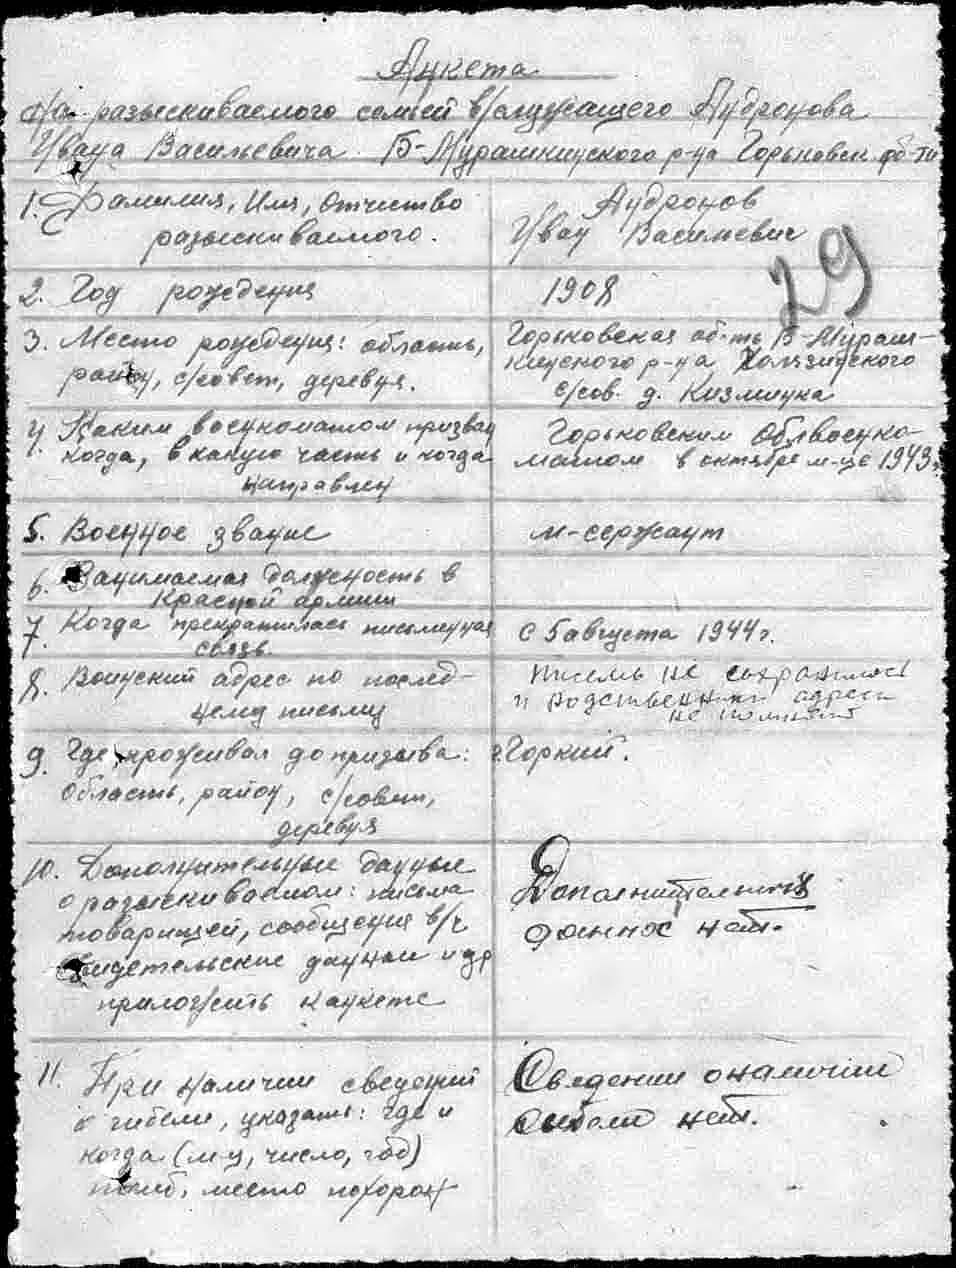 Анкета
На разыскиваемого семьей в/служащего Андронова
Ивана Васильевича Б-Мурашкинского р-на Горьковск об-ти
1. Фамилия, Имя, Отчество
разыскиваемого.
Андронов
Иван Васильевич
29
2. Год рождения
1908
3. Место рождения: область,
район, с/совет, деревня.
Горьковская об-ть Б-Мураш-
кинского р-на Холязинского
с/сов. д. Кизминка
4. Каким военкоматом призван
когда, в какую часть и когда
направлен
Горьковским Облвоенко-
матом в октябре м-це 1943г.
5. Военное звание
м-сержант
6. Занимаемая должность в
Красной армии
7. Когда прекратилась письменная
связь.
с 5 августа 1944 г.
8. Воинский адрес по послед-
нему письму
писем не сохранилось
и родственники адреса
не помнят
9. Где проживал до призыва:
область, район, с/совет,
деревня
г. Горкий.
10. Дополнительные данные
о разыскиваемом: письма
товарищей, сообщения в/ч
свидетельские данные и др
приложить канкете
Дополнительных
данных нет.
11. При наличии сведений
о гибели, указать: где и
когда (м-ц, число, год)
погиб, место похорон
Сведении о наличии
гибели нет.